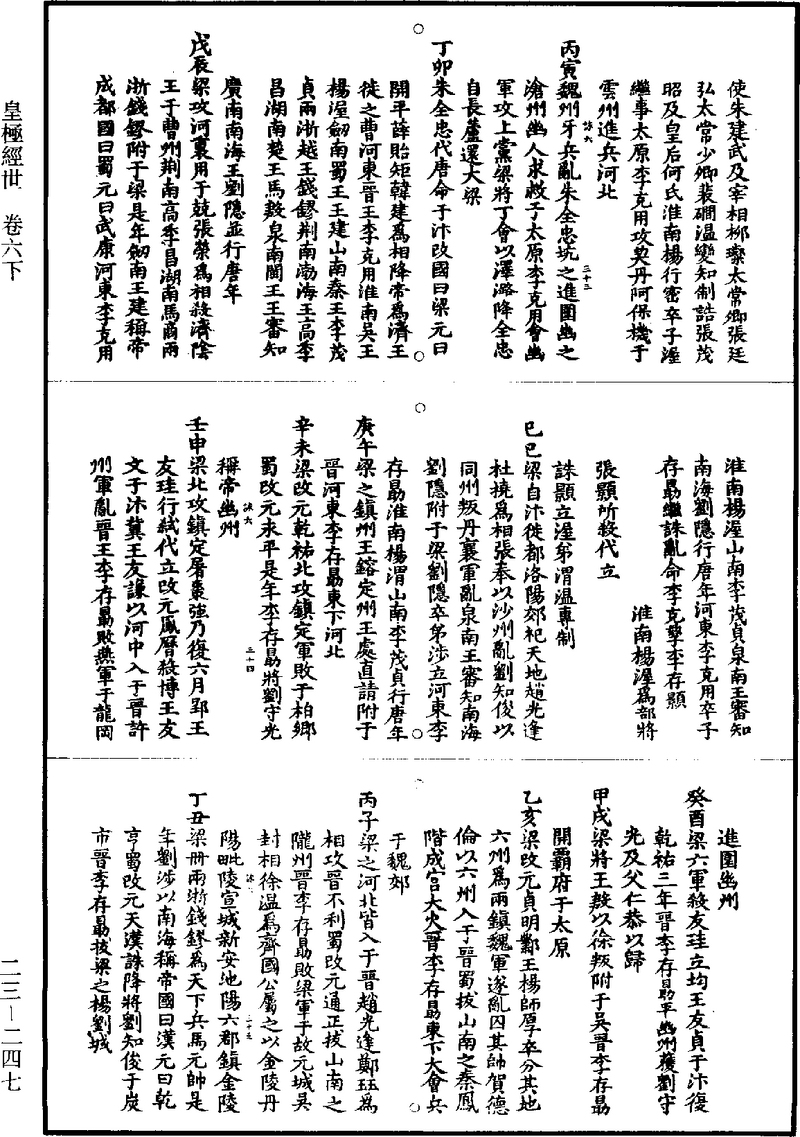 皇極經世 卷六下
二三—二四七
使朱建武及宰相柳璨太常卿張廷
弘太常少卿裴磵溫變知制誥張茂
昭及皇后何氏淮南楊行密卒子渥
繼事太原李克用攻契丹阿保機于
雲州進兵河北
丙寅魏州牙兵亂朱全忠坑之進圍幽之
滄州幽人求救于太原李克用會幽
軍攻上黨梁將丁會以澤潞降全忠
自長蘆還大梁
丁卯朱全忠代唐命于汴改國曰梁元曰
開平薛貽矩韓建爲相降帝爲濟王
徙之曹河東晉王李克用淮南吳王
楊渥劒南蜀王王建山南秦王李茂
貞兩浙越王錢鏐荆南渤海王高季
昌湖南楚王馬殷泉南閩王王審知
廣南南海王劉隱並行唐年
戊辰梁攻河襄用于兢張榮爲相殺濟陰
王于曹州荆南高季昌湖南馬商兩
浙錢鏐附于梁是年劒南王建稱帝
成都國曰蜀元曰武康河東李克用
淮南楊渥山南李茂貞泉南王審知
南海劉隱行唐年河東李克用卒子
存勗繼誅亂命李克孽李存顥
淮南楊渥爲部將
張顥所殺代立
誅顥立渥弟渭溫專制
己巳梁自汴徙都洛陽郊祀天地趙光逢
杜撓爲相張奉以沙州亂劉知俊以
同州叛丹襄軍亂泉南王審知南海
劉隱附于梁劉隱卒弟涉立河東李
存勗淮南楊渭山南李茂貞行唐年
庚午梁之鎮州王鎔定州王處直請附于
晉河東李存勗東下河北
辛未梁改元乾祐北攻鎮定軍敗于柏鄉
蜀改元永平是年李存勗將劉守光
稱帝幽州
壬申梁北攻鎮定屠棗強乃復六月郢王
友珪行弒代立改元鳳曆殺博王友
文于汴冀王友謙以河中入于晉許
州軍亂晉王李存勗敗燕軍于龍岡
進圍幽州
癸酉梁六軍殺友珪立均王友貞于汴復
乾祐三年晉李存勗平幽州獲劉守
光及父仁恭以歸
甲戌梁將王殷以徐叛附于吳晉李存勗
開霸府于太原
乙亥梁改元貞明鄴王楊師厚卒分其地
六州爲兩鎮魏軍遂亂囚其帥賀德
倫以六州入于晉蜀拔山南之秦鳳
階成宮大火晉李存勗東下大會兵
于魏郊
丙子梁之河北皆入于晉趙光逢鄭珏爲
相攻晉不利蜀改元通正拔山南之
隴州晉李存勗敗梁軍于故元城吳
封相徐溫爲齊國公屬之以金陵丹
陽毗陵宣城新安池陽六郡鎮金陵
丁丑梁冊兩浙錢鏐爲天下兵馬元帥是
年劉涉以南海稱帝國曰漢元曰乾
亨蜀改元天漢誅降將劉知俊于炭
市晉李存勗拔梁之楊劉城